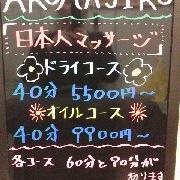 AROMAJIRO
日本人マッサージ
ドライコース
40分 5500円〜
オイルコース
40分 9900円〜
各コース 60分と90分が
あります